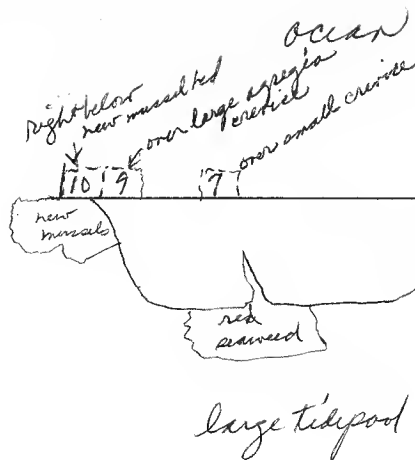 ocean
right below
new mussel bed
over large aggregia
crevice
over small crevice
10 9 7
new
mussels
red
seaweed
large tidepool